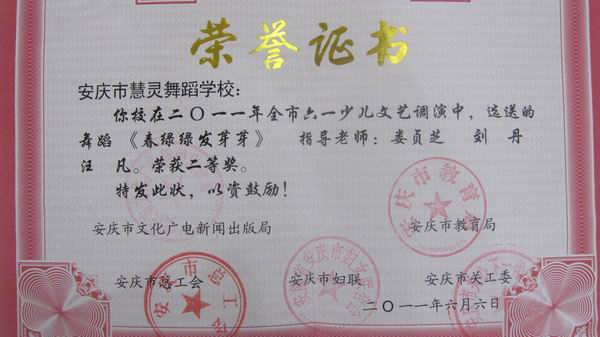 荣誉证书
安庆市慧灵舞蹈学校：
你校在二〇一一年全市六一少儿文艺调演中，选送的
舞蹈《春绿绿发芽芽》 指导老师：娄贞芝 刘 丹
汪 凡。荣获二等奖。
特发此状，以资鼓励！
安庆市文化广电新闻出版局 安庆市教育局
安庆市总工会 安庆市妇联 安庆市关工委
二〇一一年六月六日
安庆市教育
安庆市总工会
安庆市妇女联合会